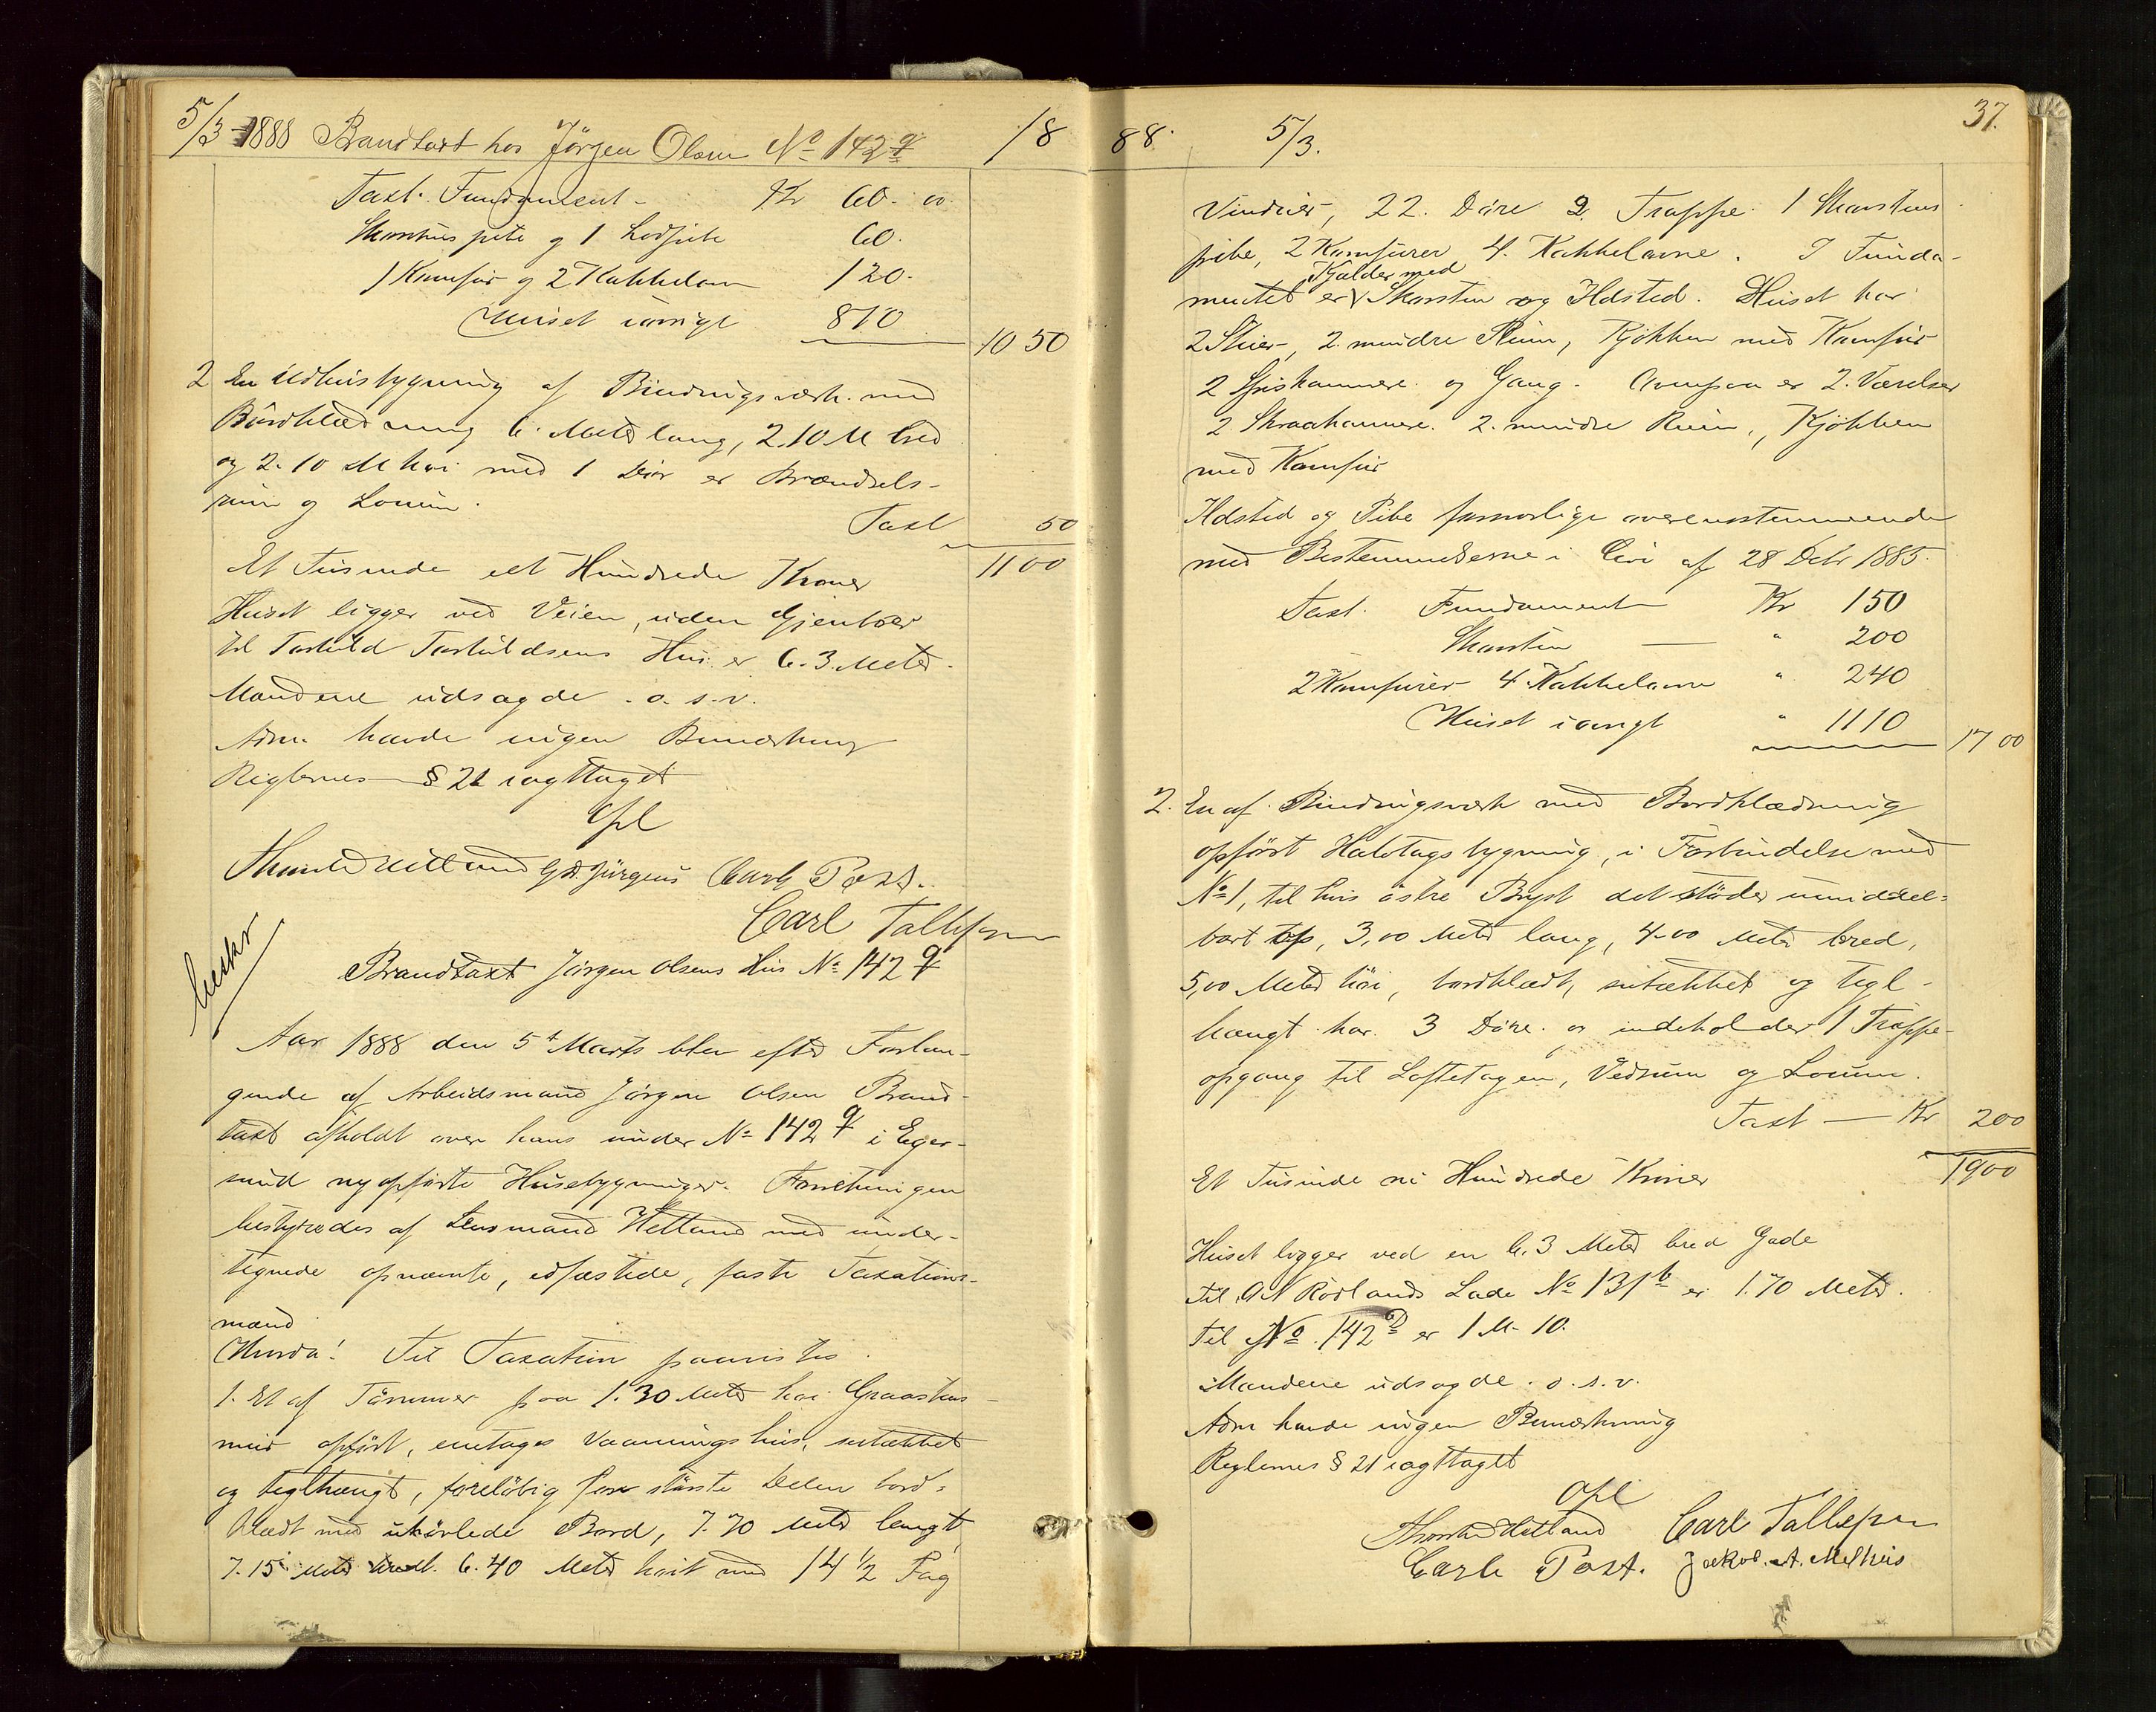 5/3 1888 Brandtaxt hos Jörgen Olsen No 142 q 18
Taxt. Fundament - Kr 60. 00
Skorstenspibe og 1 Lodpibe 60.
1 Komfur og 2 Kakkelovn 120.
Huset iövrigt 810
1050
2 En Udhusbygning af Bindingsverk med
Bordklædning 6. Meter lang, 2.10 M bred
og 2.10 M höi med 1 Dör er Brændsels-
rum og Locum.
Taxt 50
Et Tusinde et Hundrede Kroner 1100
Huset ligger ved Veien, uden Gjenboer
til Torkild Torkildsens Hus er 6.3. Meter.
Mændene udsagde o. s. v.
Adm. havde ingen Bemærkning
Reglernes § 21 iagttaget
Opl
Hetland G. A. Jürgens Carl Poxt.
Carl Tollefsen
Brandtaxt Jörgen Olsens Hus No 142 q
Aar 1888 den 5t Marts blev efter Forlan-
gende af Arbeidsmand Jörgen Olsen Brand-
taxt afholdt over hans under No 142 q i Eger-
sund nyopförte Husebygninger. Forretningen
bestyredes af Lensmand Hetland med under-
tegnede opnævnte, edfæstede, faste Taxations-
mænd
Til Taxation paavistes.
1. Et af Tömmer paa 1.30 Meter höi Graastens
mur opfört, enetages Vaaningshus, sutækket
og teglhængt, foreløbig for störste Delen bord-
klædt med uhövlede Bord, 7.70 Meter langt
7.15 Meter bredt. 6.40 Meter höit med 14 1/2 Fag
88. 5/3. 37.
Vinduer, 22. Döre 2. Trappe. 1 Skorstens
pibe, 2 Komfurer 4. Kakkelovne. I Funda-
Kjælder med
mentet er Skorsten og Ildsted. Huset har
2 Stuer, 2. mindre Rum, Kjökken med Komfur
2 Spiskammere og Gang. Ovenpaa er 2. Værelser
2. Skraakammere. 2. mindre Rum, Kjökken
med Komfur
Ildsted og Pibe forsvarlige overensstemmende
med Bestemmelserne i Circ af 28 Debr 1885.
Taxt. Fundament Kr 150
Skorsten — " 200
2 Komfurer 4 Kakkelovne " 240
Huset iövrigt " 1110
1700
2. En af Bindingsverk med Bordklædning
opfört Halvtagsbygning, i Forbindelse med
No 1, til hvis östre Bryst det stöder umiddel-
bart op, 3,00 Meter lang, 4.00 Meter bred,
5,00 Meter höi, bordklædt, sutækket og tegl-
hængt har 3 Döre og indeholder 1 Trappe-
opgang til Loftetagen, Vedrum og Locum.
Taxt — Kr 200
Et Tusinde ni Hundrede Kroner 1900
Huset ligger ved en 6.3 Meter bred Gade
til A N Rödlands Lade No 131 b er 1.70 Meter.
Til No 142 D er 1 M. 10.
Mændene udsagde. o. s. v.
Adm havde ingen Bemærkning
Reglernes § 21 iagttaget
Opl
Hetland Carl Tollefsen
Carl Poxt. Jakob. A. Melhus